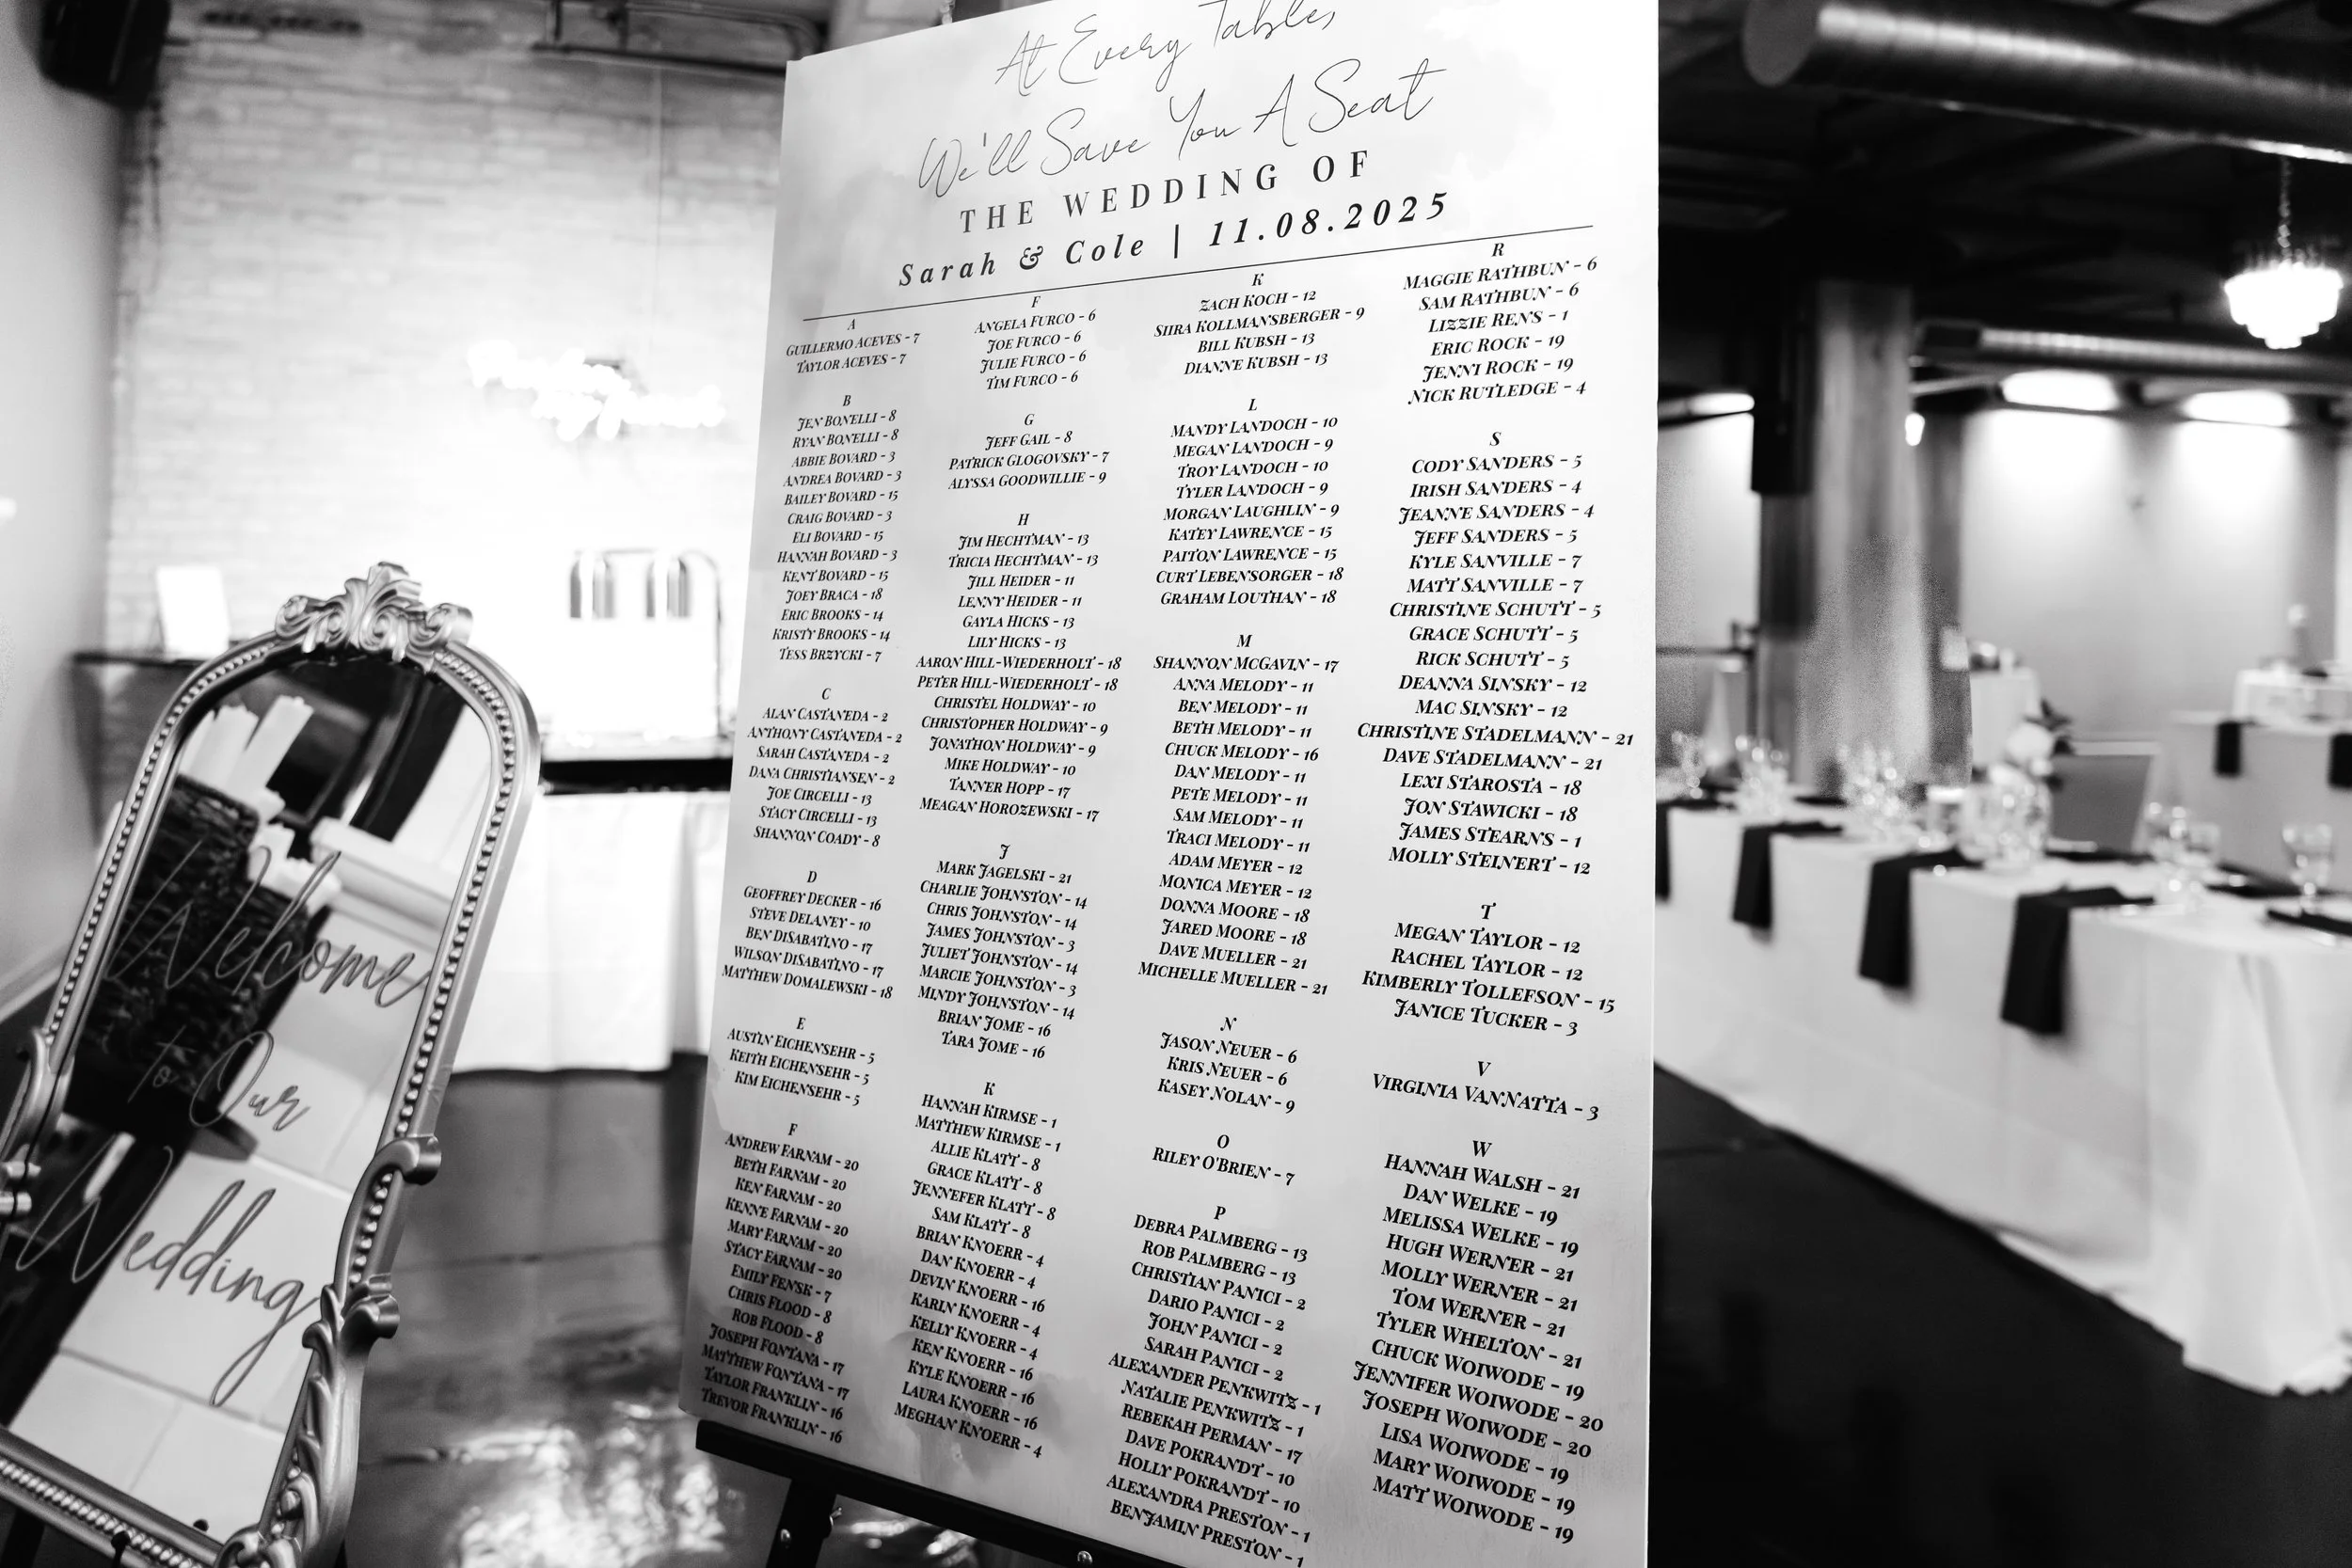 At Every Tables
We'll Save You A Seat
THE WEDDING OF
Sarah & Cole | 11.08.2025
A
GUILLERMO ACEVES - 7
TAYLOR ACEVES - 7
B
JEN BONELLI - 8
RYAN BONELLI - 8
ABBIE BOVARD - 3
ANDREA BOVARD - 3
BAILEY BOVARD - 15
CRAIG BOVARD - 3
ELI BOVARD - 15
HANNAH BOVARD - 3
KENT BOVARD - 15
JOEY BRACA - 18
ERIC BROOKS - 14
KRISTY BROOKS - 14
TESS BRZYCKI - 7
C
ALAN CASTANEDA - 2
ANTHONY CASTANEDA - 2
SARAH CASTANEDA - 2
DANA CHRISTIANSEN - 2
JOE CIRCELLI - 13
STACY CIRCELLI - 13
SHANNON COADY - 8
D
GEOFFREY DECKER - 16
STEVE DELANEY - 10
BEN DISABATINO - 17
WILSON DISABATINO - 17
MATTHEW DOMALEWSKI - 18
E
AUSTIN EICHENSEHR - 5
KEITH EICHENSEHR - 5
KIM EICHENSEHR - 5
F
ANDREW FARNAM - 20
BETH FARNAM - 20
KEN FARNAM - 20
KENNE FARNAM - 20
MARY FARNAM - 20
STACY FARNAM - 20
EMILY FENSK - 7
CHRIS FLOOD - 8
ROB FLOOD - 8
JOSEPH FONTANA - 17
MATTHEW FONTANA - 17
TAYLOR FRANKLIN - 16
TREVOR FRANKLIN - 16
F
ANGELA FURCO - 6
JOE FURCO - 6
JULIE FURCO - 6
TIM FURCO - 6
G
JEFF GAIL - 8
PATRICK GLOGOVSKY - 7
ALYSSA GOODWILLIE - 9
H
JIM HECHTMAN - 13
TRICIA HECHTMAN - 13
JILL HEIDER - 11
LENNY HEIDER - 11
GAYLA HICKS - 13
LILY HICKS - 13
AARON HILL-WIEDERHOLT - 18
PETER HILL-WIEDERHOLT - 18
CHRISTEL HOLDWAY - 10
CHRISTOPHER HOLDWAY - 9
JONATHON HOLDWAY - 9
MIKE HOLDWAY - 10
TANNER HOPP - 17
MEAGAN HOROZEWSKI - 17
J
MARK JAGELSKI - 21
CHARLIE JOHNSTON - 14
CHRIS JOHNSTON - 14
JAMES JOHNSTON - 3
JULIET JOHNSTON - 14
MARCIE JOHNSTON - 3
MINDY JOHNSTON - 14
BRIAN JOME - 16
TARA JOME - 16
K
HANNAH KIRMSE - 1
MATTHEW KIRMSE - 1
ALLIE KLATT - 8
GRACE KLATT - 8
JENNEFER KLATT - 8
SAM KLATT - 8
BRIAN KNOERR - 4
DAN KNOERR - 4
DEVIN KNOERR - 16
KARIN KNOERR - 4
KELLY KNOERR - 4
KEN KNOERR - 16
KYLE KNOERR - 16
LAURA KNOERR - 16
MEGHAN KNOERR - 4
K
ZACH KOCH - 12
SIIRA KOLLMANSBERGER - 9
BILL KUBSH - 13
DIANNE KUBSH - 13
L
MANDY LANDOCH - 10
MEGAN LANDOCH - 9
TROY LANDOCH - 10
TYLER LANDOCH - 9
MORGAN LAUGHLIN - 9
KATEY LAWRENCE - 15
PAITON LAWRENCE - 15
CURT LEBENSORGER - 18
GRAHAM LOUTHAN - 18
M
SHANNON MCGAVIN - 17
ANNA MELODY - 11
BEN MELODY - 11
BETH MELODY - 11
CHUCK MELODY - 16
DAN MELODY - 11
PETE MELODY - 11
SAM MELODY - 11
TRACI MELODY - 11
ADAM MEYER - 12
MONICA MEYER - 12
DONNA MOORE - 18
JARED MOORE - 18
DAVE MUELLER - 21
MICHELLE MUELLER - 21
N
JASON NEUER - 6
KRIS NEUER - 6
KASEY NOLAN - 9
O
RILEY O'BRIEN - 7
P
DEBRA PALMBERG - 13
ROB PALMBERG - 13
CHRISTIAN PANICI - 2
DARIO PANICI - 2
JOHN PANICI - 2
SARAH PANICI - 2
ALEXANDER PENKWITZ - 1
NATALIE PENKWITZ - 1
REBEKAH PERMAN - 17
DAVE POKRANDT - 10
HOLLY POKRANDT - 10
ALEXANDRA PRESTON - 1
BENJAMIN PRESTON - 1
R
MAGGIE RATHBUN - 6
SAM RATHBUN - 6
LIZZIE RENS - 1
ERIC ROCK - 19
JENNI ROCK - 19
NICK RUTLEDGE - 4
S
CODY SANDERS - 5
IRISH SANDERS - 4
JEANNE SANDERS - 4
JEFF SANDERS - 5
KYLE SANVILLE - 7
MATT SANVILLE - 7
CHRISTINE SCHUTT - 5
GRACE SCHUTT - 5
RICK SCHUTT - 5
DEANNA SINSKY - 12
MAC SINSKY - 12
CHRISTINE STADELMANN - 21
DAVE STADELMANN - 21
LEXI STAROSTA - 18
JON STAWICKI - 18
JAMES STEARNS - 1
MOLLY STEINERT - 12
T
MEGAN TAYLOR - 12
RACHEL TAYLOR - 12
KIMBERLY TOLLEFSON - 15
JANICE TUCKER - 3
V
VIRGINIA VANNATTA - 3
W
HANNAH WALSH - 21
DAN WELKE - 19
MELISSA WELKE - 19
HUGH WERNER - 21
MOLLY WERNER - 21
TOM WERNER - 21
TYLER WHELTON - 21
CHUCK WOIWODE - 19
JENNIFER WOIWODE - 20
JOSEPH WOIWODE - 20
LISA WOIWODE - 19
MARY WOIWODE - 19
MATT WOIWODE - 19
Welcome
to Our
Wedding